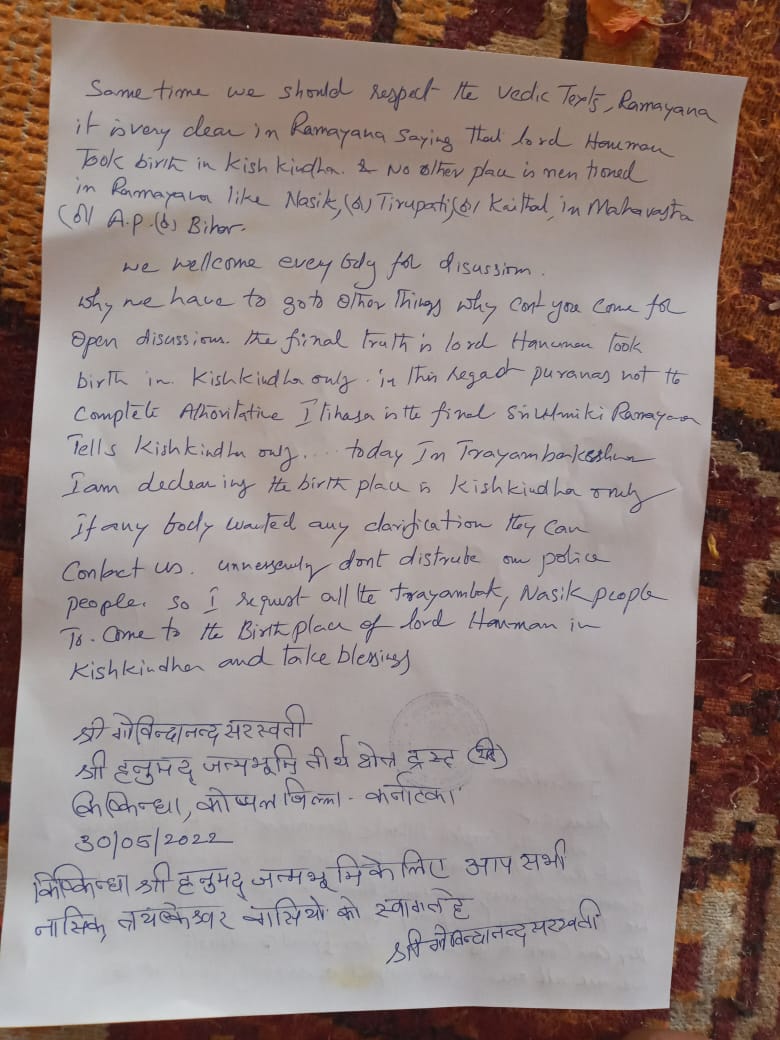 Same time we should respect the Vedic Texts, Ramayana
it is very clear in Ramayana saying that lord Hanuman
Took birth in Kishkindha. & No other place is mentioned
in Ramayana like Nasik, (or) Tirupati, (or) Kaithal, in Maharastra
(or) A.P. (or) Bihar.
we wellcome every body for disussion.
why we have to go to other Things why cont you come for
open disussions. the final truth is lord Hanuman Took
birth in. Kishkindha only. in this regard puranas not the
complete Athoritative Itihasa is the final Sri Valmiki Ramayana
Tells Kishkindha only.... today In Trayambakeshwar
I am declearing the birth place is Kishkindha only
if any body wanted any clarification they can
Contact us. unnessesarly dont distrube our police
people. So I request all the trayambak, Nasik people
To. Come to the Birth place of lord Hanuman in
Kishkindha and take blessings
श्री गोविन्दानन्द सरस्वती
श्री हनुमद् जन्मभूमि तीर्थ क्षेत्र ट्रस्ट
किष्किन्धा, कोप्पल जिल्ला - कर्नाटका
30/05/2022
किष्किन्धा श्री हनुमद् जन्मभूमि के लिए आप सभी
नासिक, त्र्यम्बकेश्वर वासियो को स्वागत हे
श्री गोविन्दानन्द सरस्वती